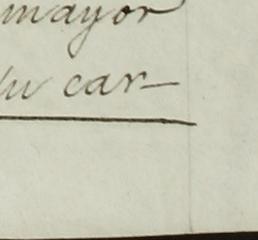 mayor
su car-